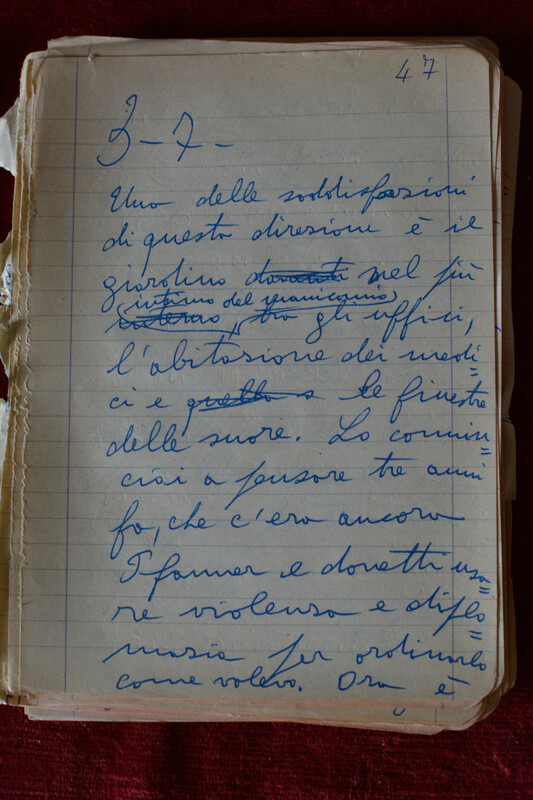 47
3-7-
Una delle soddisfazioni
di questa direzione è il
giardino davanti nel più
(intimo del manicomio)
interno, tra gli uffici,
l'abitazione dei medi=
ci e quella s le finestre
delle suore. Lo comin=
ciai a pensare tre anni
fa, che c'era ancora
Pfanner e dovetti usa=
re violenza e diplo=
mazia per ordinarlo
come volevo. Ora è